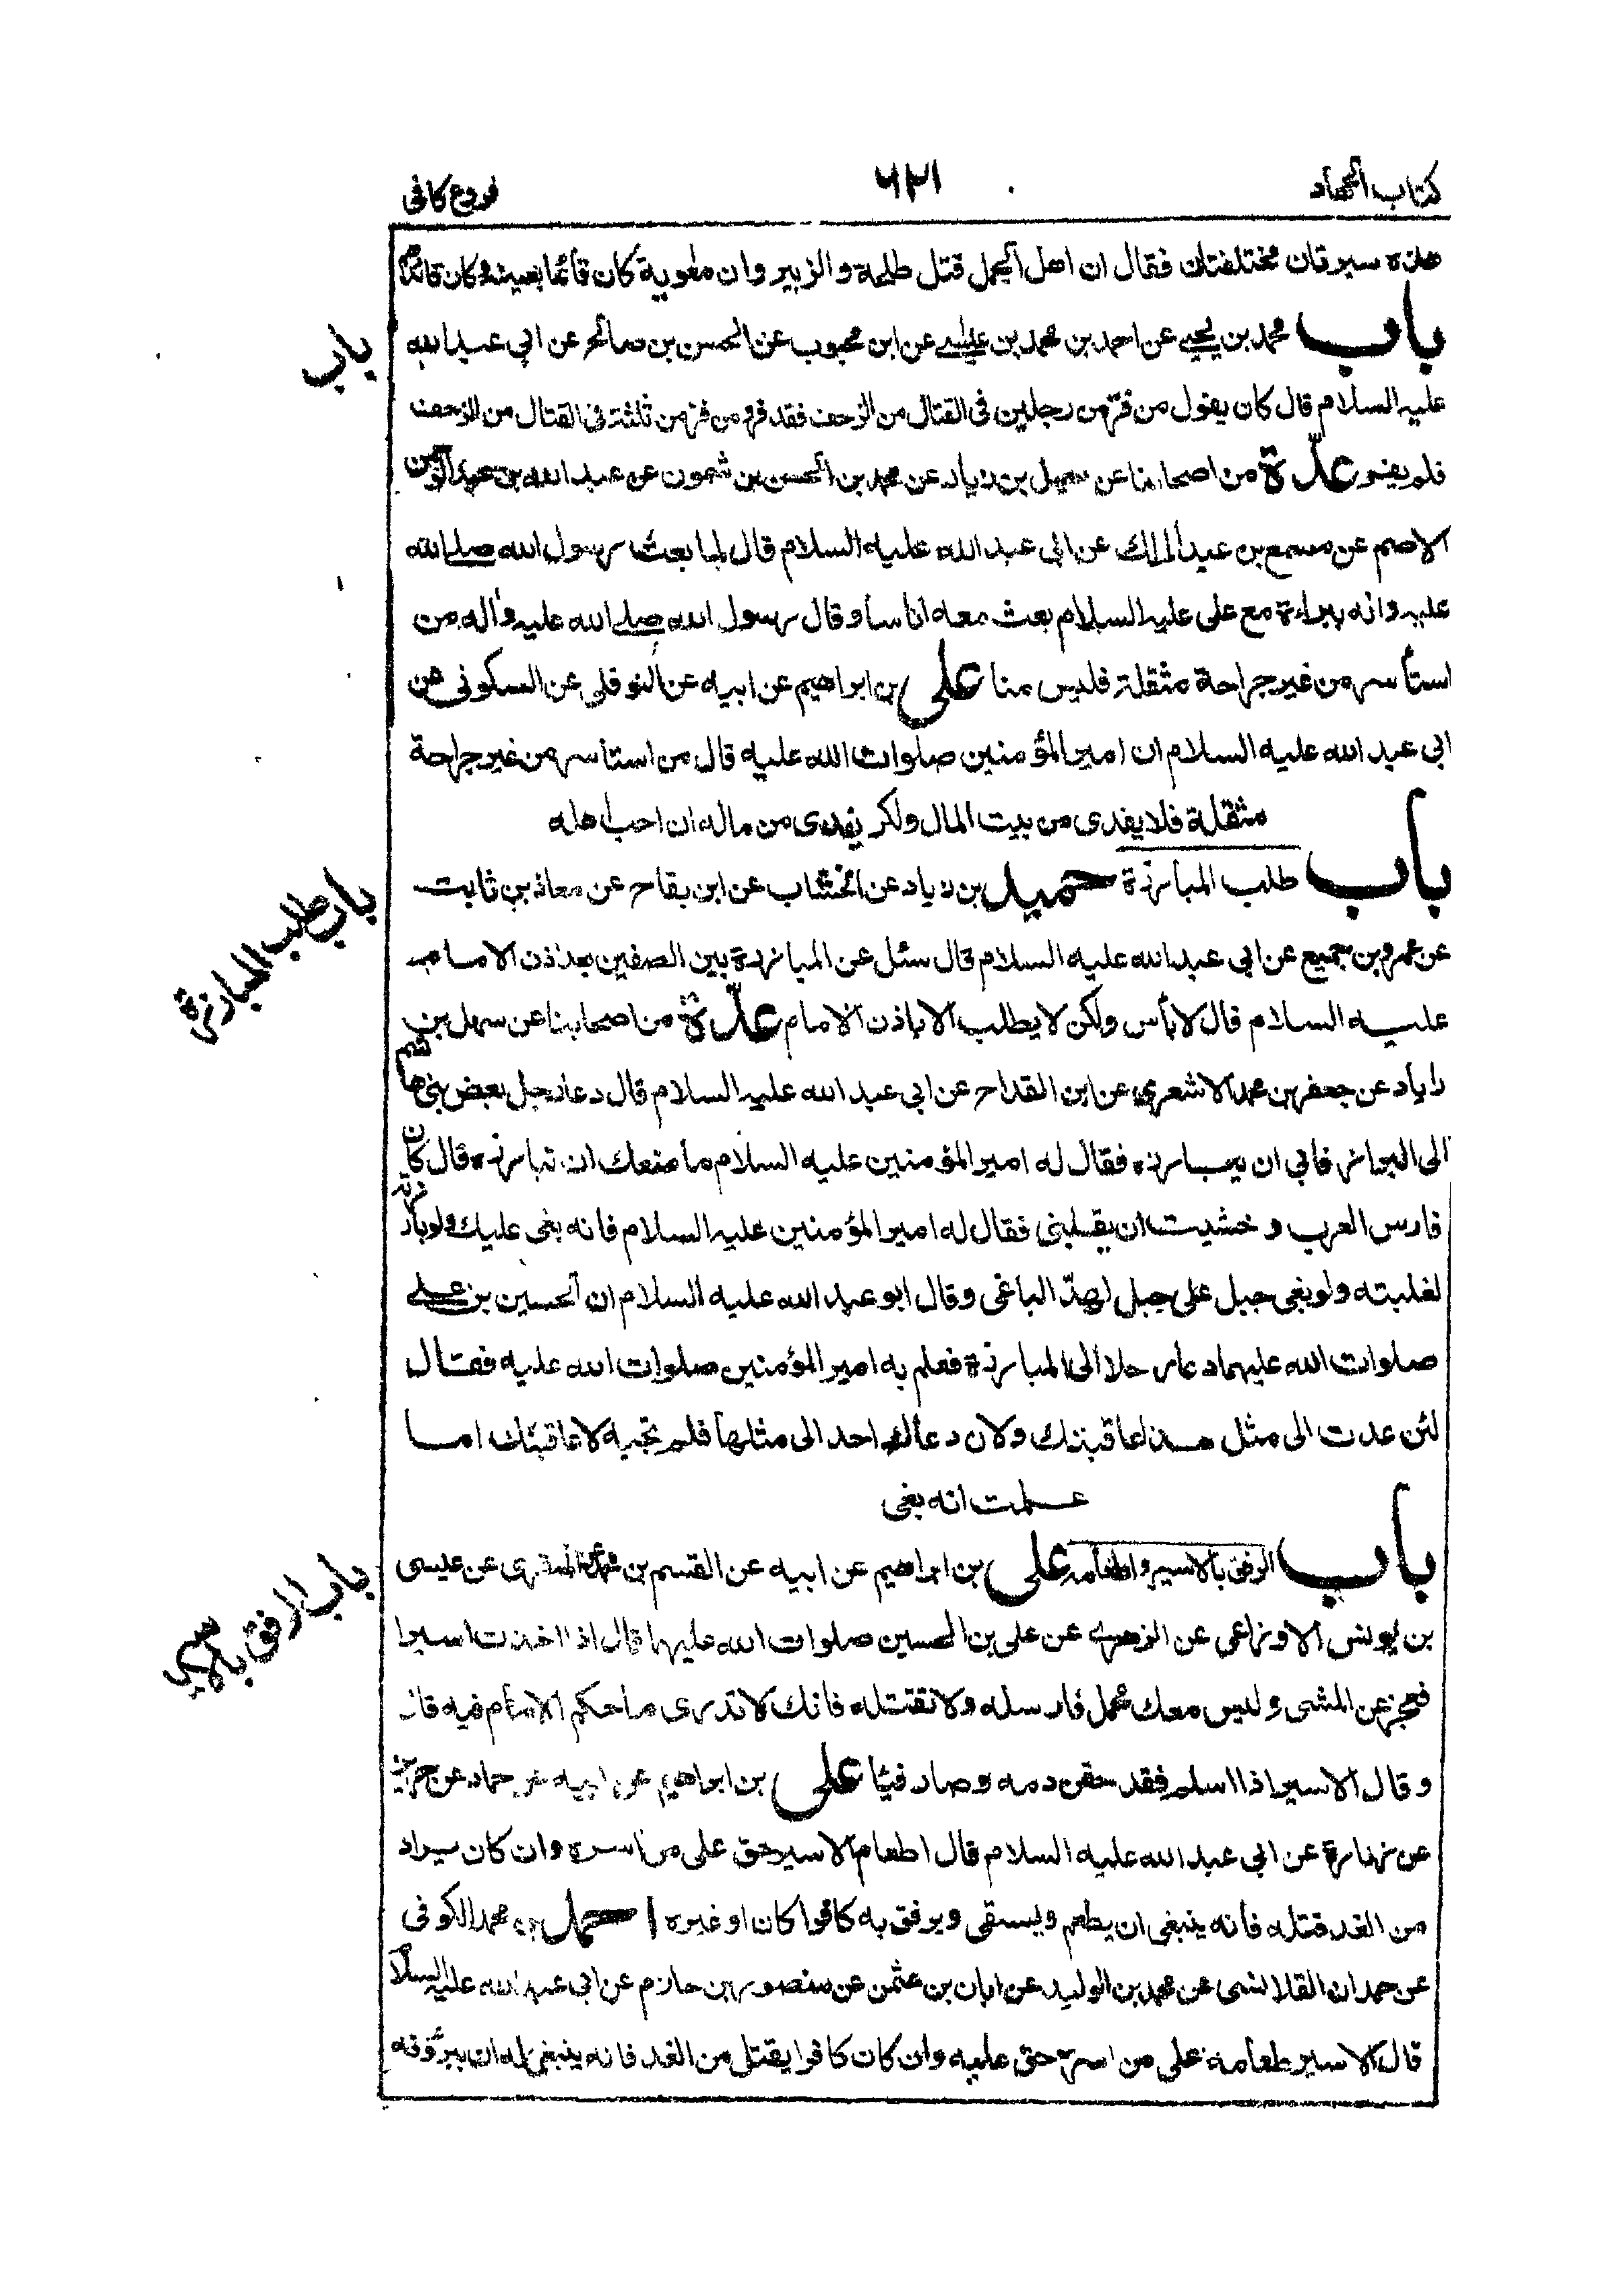 كتاب الجهاد
٦٢١
فروع كافى
هذه سيرتان مختلفتان فقال ان اهل الجمل قتل طلحة والزبير وان معٰوية كان قائما بعينه وكان قائدهم
باب محمد بن يحيى عن احمد بن محمد بن عيسى عن ابن محبوب عن الحسن بن صالح عن ابي عبد الله
باب
عليه السلام قال كان يقول من فرّ من رجلين فى القتال من الزحف فقد فرّ ومن فرّ من ثلثة فى القتال من الزحف
فلم يفر عدّة من اصحابنا عن سهل بن زياد عن محمد بن الحسن بن شمون عن عبد الله بن عبد الرحمن
الاصم عن مسمع بن عبد الملك عن ابى عبد الله عليه السلام قال لما بعث رسول الله صلى الله
عليه واله ببراءة مع على عليه السلام بعث معه اناسا وقال رسول الله صلى الله عليه واٰله من
استأسر من غير جراحة مثقلة فليس منا على بن ابراهيم عن ابيه عن النوفلى عن السكونى عن
ابى عبد الله عليه السلام ان امير المؤمنين صلوات الله عليه قال من استاسر من غير جراحة
مثقلة فلا يفدى من بيت المال ولكن يفدى من ماله ان احب اهله
باب طلب المبارزة حميد بن زياد عن الخشاب عن ابن بقاح عن معاذ بن ثابت
باب طلب المبارزة
عن عمرو بن جميع عن ابي عبد الله عليه السلام قال سئل عن المبارزة بين الصفين بعد اذن الامام
عليه السلام قال لا بأس ولكن لا يطلب الا باذن الامام عدّة من اصحابنا عن سهل بن
زياد عن جعفر بن محمد الاشعرى عن ابن القداح عن ابي عبد الله عليه السلام قال دعا رجل بعض بنى هاشم
الى البراز فابى ان يبارزه فقال له امير المؤمنين عليه السلام ما منعك ان تبارزه قال كان
فارس العرب وخشيت ان يقلبنى فقال له امير المؤمنين عليه السلام فانه بغى عليك ولو بارزته
لغلبته ولو بغى جبل على جبل لهدّ الباغى وقال ابو عبد الله عليه السلام ان الحسين بن على
صلوات الله عليهما دعا رجلا الى المبارزة فعلم به امير المؤمنين صلوات الله عليه فقال
لئن عدت الى مثل هذا لعاقبتك ولان دعاك احد الى مثلها فلم تجبه لاعاقبتك اما
علمت انه بغى
باب الرفق بالاسير واطعامه على بن ابراهيم عن ابيه عن القسم بن محمد المنقرى عن عيسى
باب الرفق بالاسير
بن يونس الاوزاعى عن الزهرى عن على بن الحسين صلوات الله عليهما قال اذا اخذت اسيرا
فعجز عن المشى وليس معك محمل فارسله ولا تقتله فانك لا تدرى ما حكم الامام فيه قال
وقال الاسير اذا اسلم فقد حقن دمه وصار فيئا على بن ابراهيم عن ابيه عن حماد عن حريز
عن زرارة عن ابي عبد الله عليه السلام قال اطعام الاسير حق على من اسره وان كان يراد
من الغد قتله فانه ينبغى ان يطعم ويسقى ويرفق به كافرا كان او غيره احمد بن محمد الكوفى
عن حمدان القلانسى عن محمد بن الوليد عن ابان بن عثمن عن منصور بن حازم عن ابى عبد الله عليه السلام
قال الاسير طعامه على من اسره حق عليه وان كان كافرا يقتل من الغد فانه ينبغى له ان يرؤفه